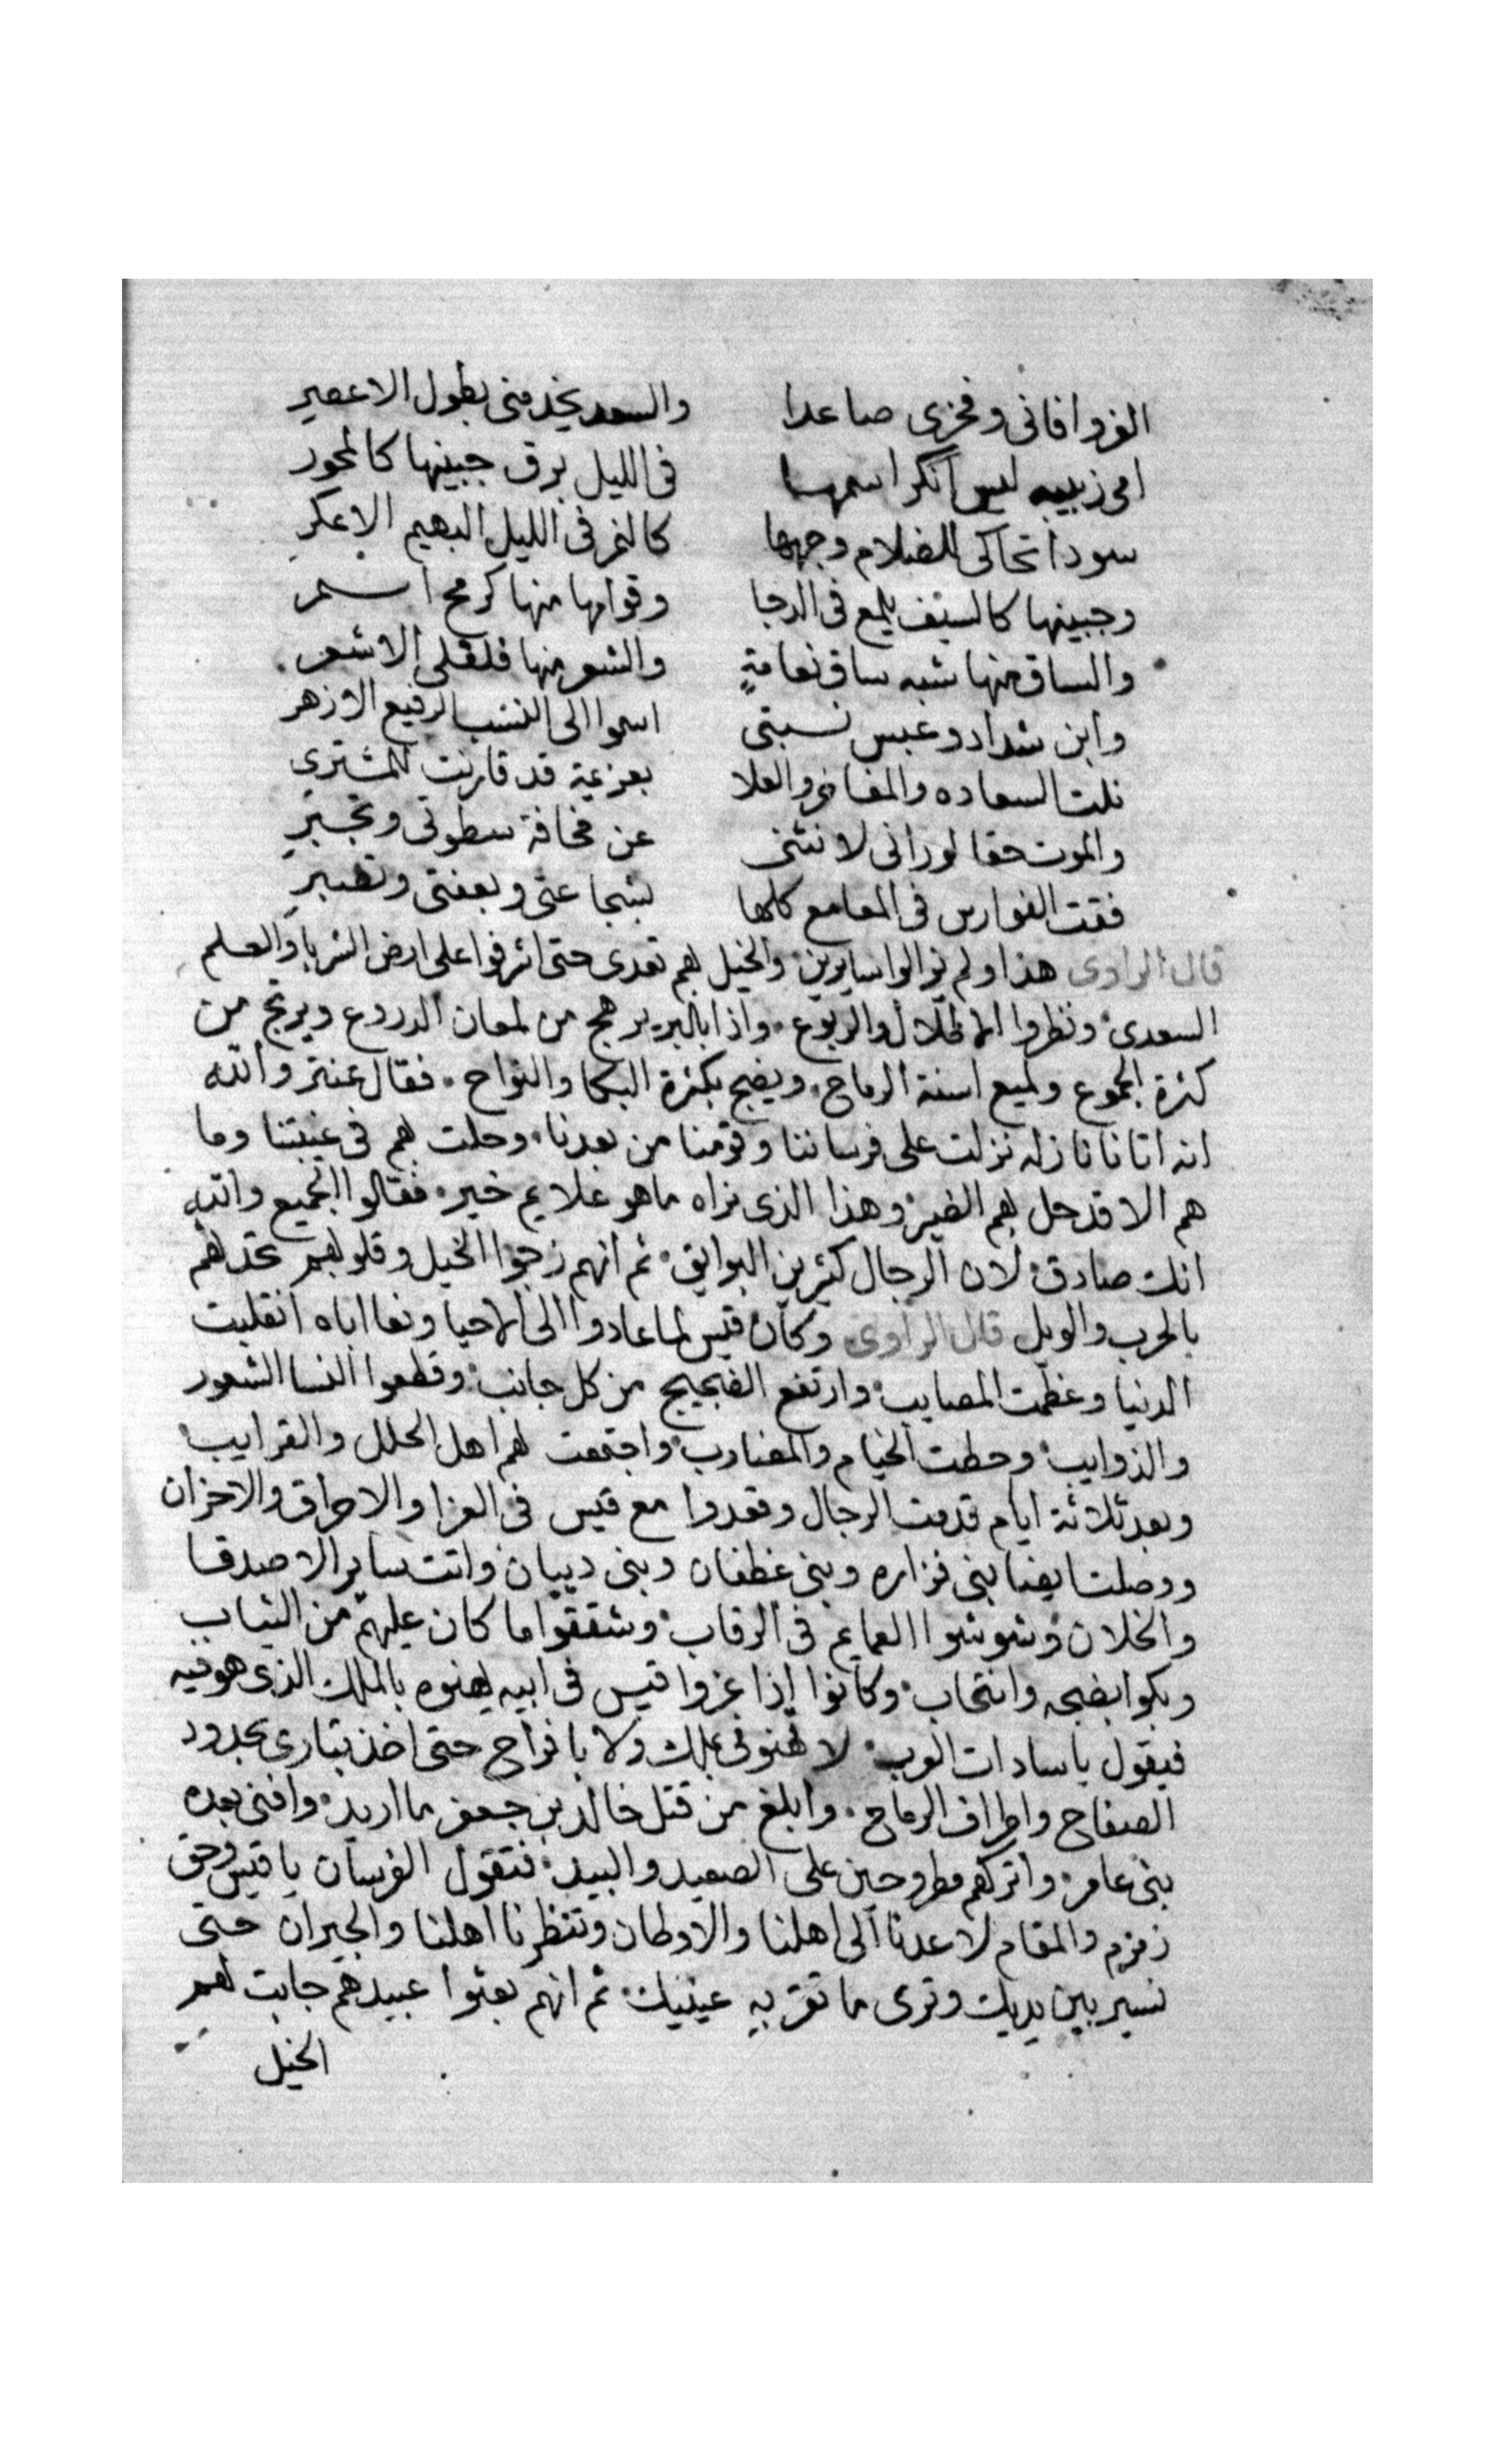 العز وافاني وفخري صاعدا والسعد يخدمني بطول الاعصير
امي زبيبه ليس انكر اسمها في الليل برق جبينها كالمحور
سودا تحاكي للضلام وجهها كالنمر في الليل البهيم الاعكر
وجبينها كالسيف يلمع في الدجا وقوامها منها كرمح اسمر
والساق منها شبه ساق نعامةٍ والشعر منها فلفلي الاشعر
وابن شداد وعبس نسبتي اسموا الى النسب الرفيع الازهر
نلت السعاده والمفاخر والعلا بعزيمة قد قارنت للمشتري
والموت حقا لوراني لانثنى عن مخافة سطوتي وتجبر
فقت الفوارس في المعامع كلها بشجاعتي وبعفتي وتصبر
قال الراوي هذا ولم يزالوا سايرين والخيل بهم تعدى حتى اشرفوا على ارض الشربا والعلم
السعدي ونظروا الاطلال والربوع واذا بالبر يرهج من لمعان الدردوع ويرتج من
كثرة الجموع ولميع اسنة الرماح ويضج بكثرة البكا والنواح فقال عنتر والله
انه اتانا نازله نزلت على فرساننا وقومنا من بعدنا وحلت بهم في غيبتنا وما
هم الا قد حل بهم الضير وهذا الذي نراه ما هو علايم خير فقالوا الجميع والله
انك صادق لان الرجال كثيرين البوايق ثم انهم زجوا الخيل وقلوبهم تحدثهم
بالحرب والويل قال الراوي وكان قيس لما عادوا الى الاحيا ونعا اباه انقلبت
الدنيا وعظمت المصايب وارتفع الضجيج من كل جانب وقطعوا النسا الشعور
والذوايب وحطت الخيام والمضارب واجتمعت لهم اهل الحلل والقرايب
وبعد ثلاثة ايام قدمت الرجال وقعدوا مع قيس في العزا والاحراق والاحزان
ووصلت ايضا بني فزاره وبني غطفان وبني ديبان واتت ساير الاصدقا
والخلان وشوشوا العمايم في الرقاب وشققوا ما كان عليهم من الثياب
وبكوا بضجه وانتحاب وكانوا إذا عزوا قيس في ابيه يهنوه بالملك الذي هو فيه
فيقول يا سادات العرب لا تهنوني بملك ولا بافراح حتى اخذ بثاري بحدود
الصفاح واطراف الرماح وابلغ من قتل خالد بن جعفر ما اريد وافني بعده
بني عامر واتركهم مطروحين على الصعيد والبيد فتقول الفرسان يا قيس وحق
زمزم والمقام لا عدنا الى اهلنا والاوطان وتنظرنا اهلنا والجيران حتى
نسير بين يديك وترى ما تقر به عينيك ثم انهم بعثوا عبيدهم جابت لهم
الخيل